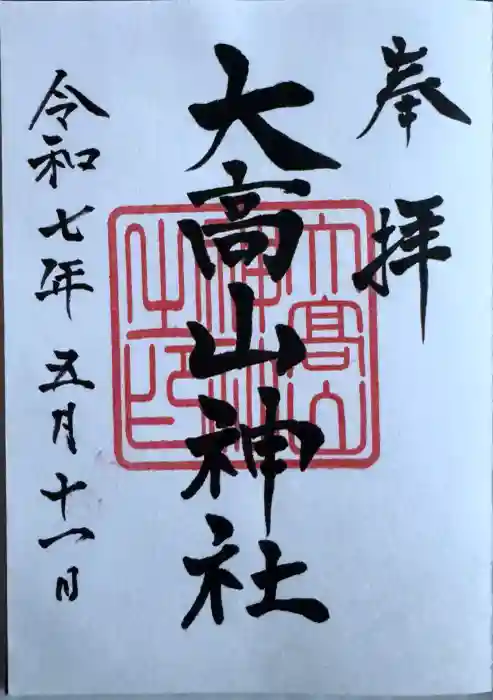 奉拝
大高山神社
令和七年五月十一日
大高山
神社
之印